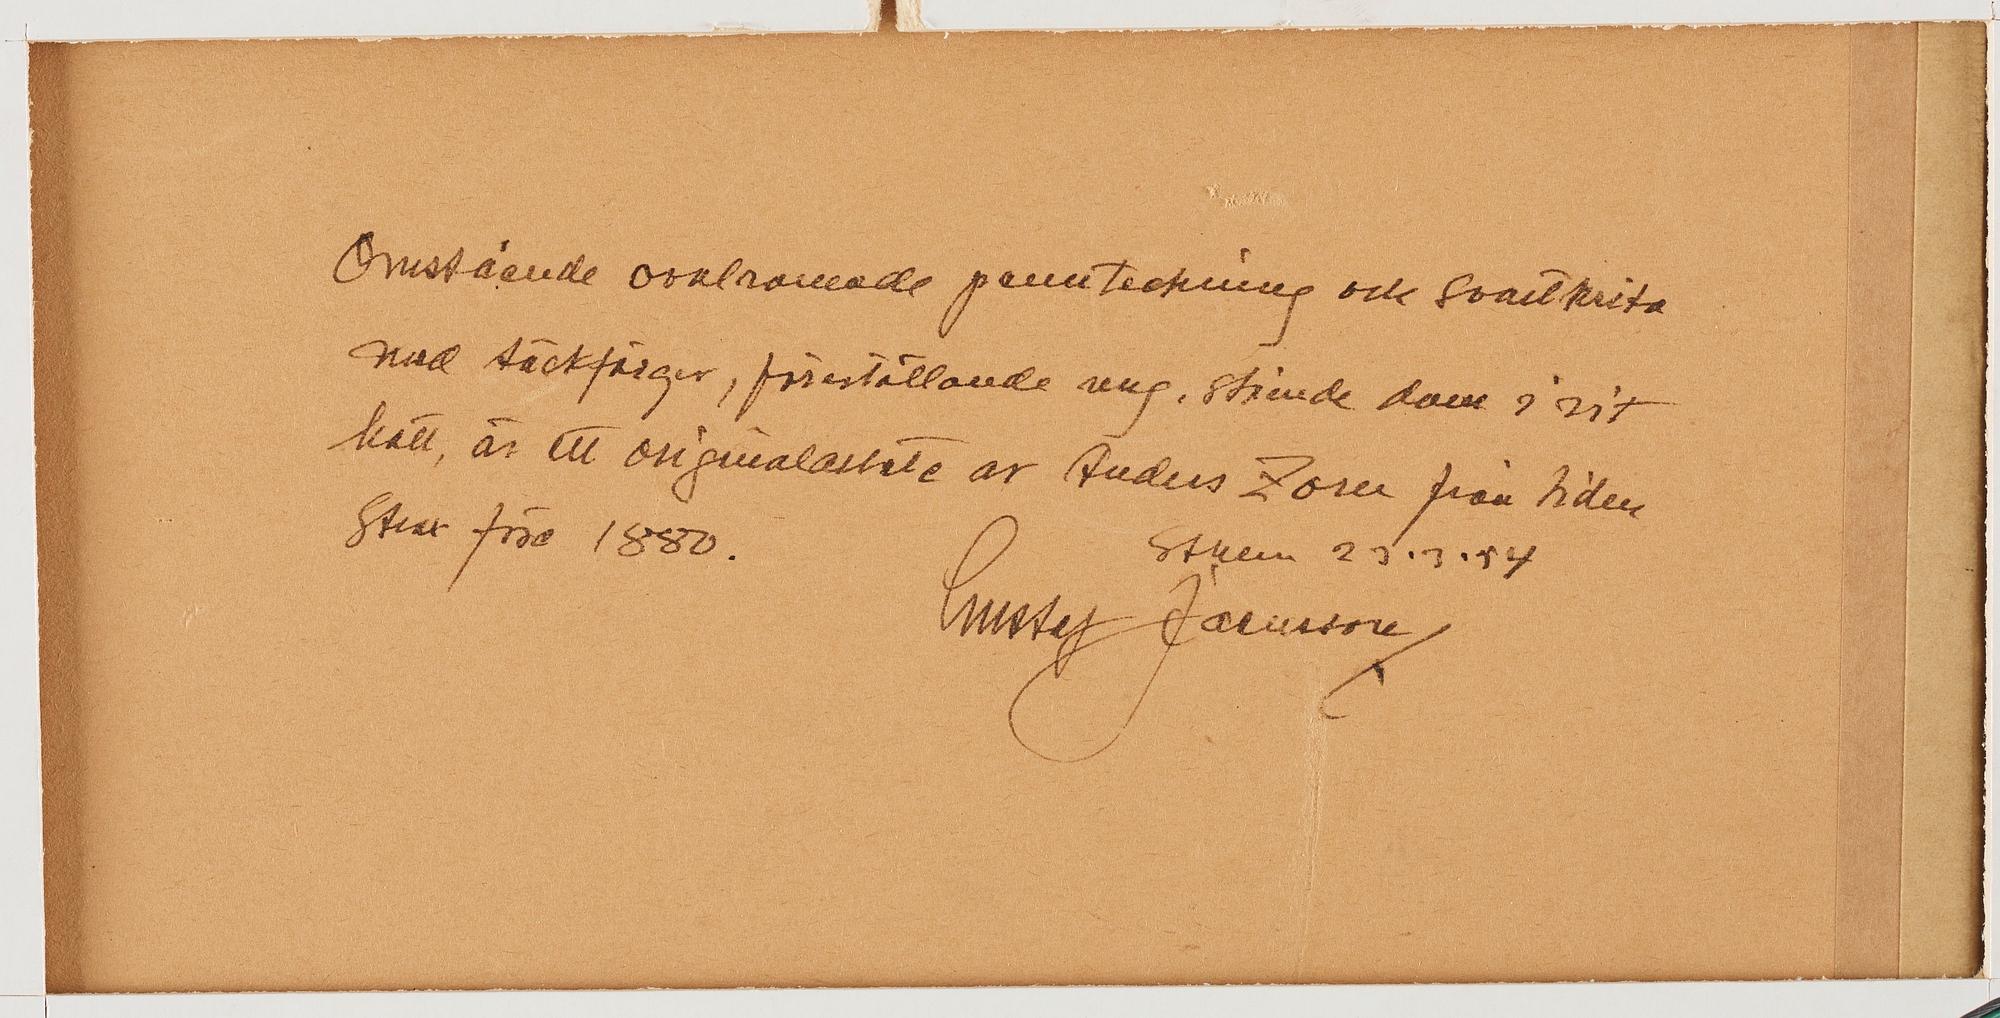 Omstående ovalramade pennteckning och svartkrita
med täckfärger, föreställande ung, stående dam i vit
hatt, är ett originalarbete av Anders Zorn från tiden
strax före 1880.
Sthlm 23.3.54
Gustaf